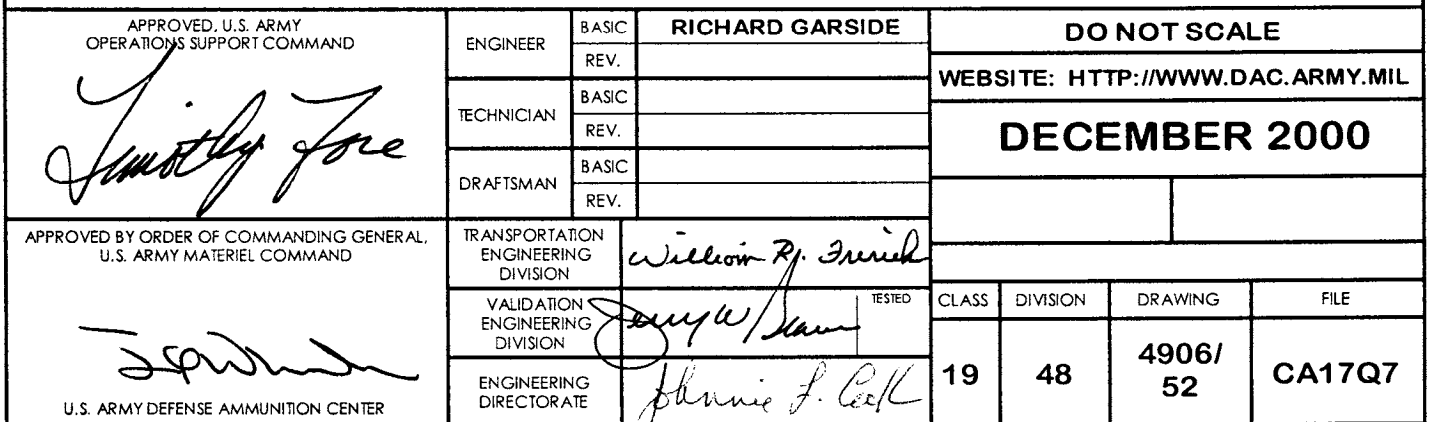 APPROVED, U.S. ARMY
OPERATIONS SUPPORT COMMAND
Timothy Fore
APPROVED BY ORDER OF COMMANDING GENERAL,
U.S. ARMY MATERIEL COMMAND
U.S. ARMY DEFENSE AMMUNITION CENTER
ENGINEER
BASIC
RICHARD GARSIDE
REV.
TECHNICIAN
BASIC
REV.
DRAFTSMAN
BASIC
REV.
TRANSPORTATION
ENGINEERING
DIVISION
William R.
VALIDATION
ENGINEERING
DIVISION
Jerry W
TESTED
ENGINEERING
DIRECTORATE
Johnnie F.
DO NOT SCALE
WEBSITE: HTTP://WWW.DAC.ARMY.MIL
DECEMBER 2000
CLASS DIVISION DRAWING FILE
19 48 4906/ CA17Q7
52